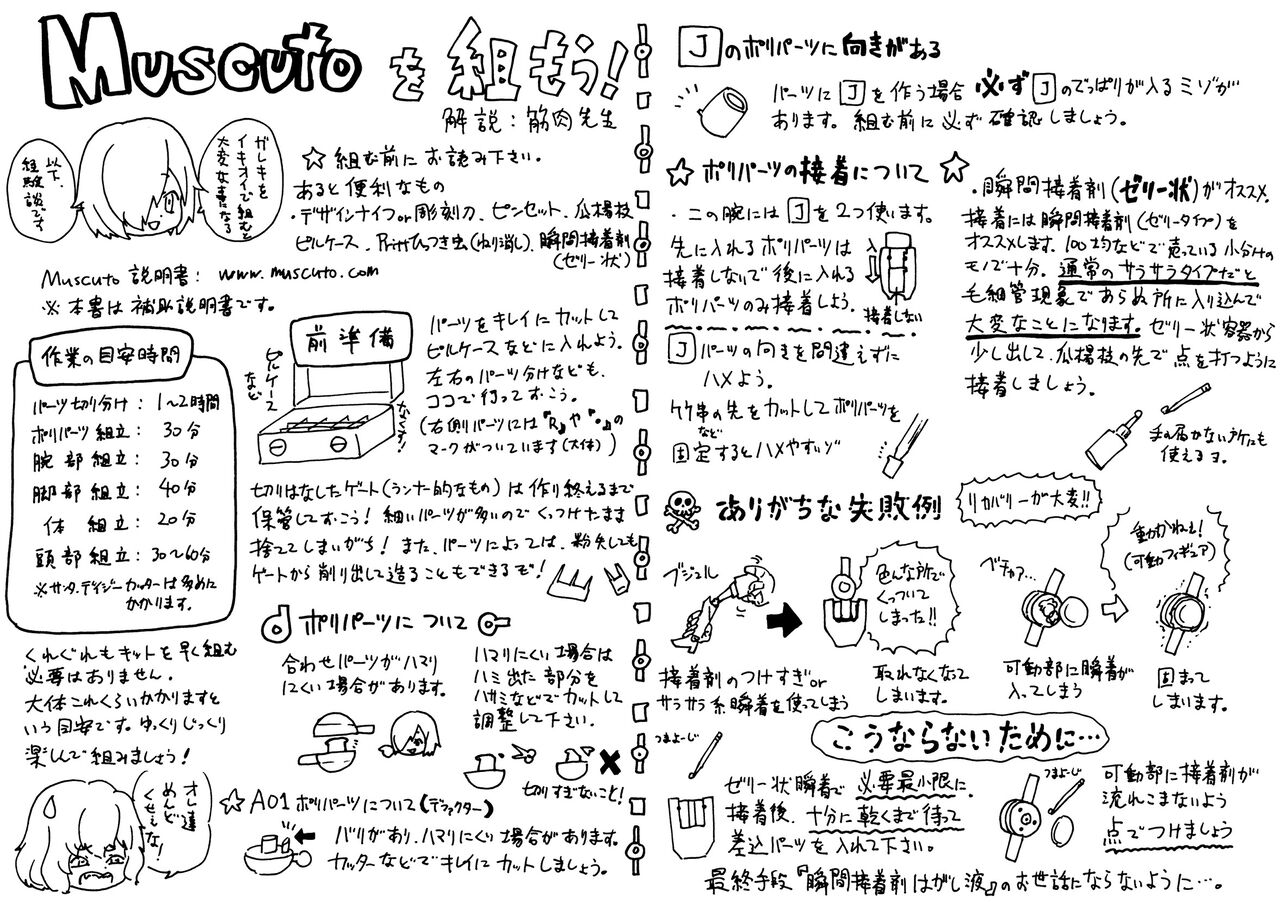 Muscutoを組もう!
解説：筋肉先生
ガレキを
イキオイで組むと
大変な事になる
以下、
経験談です
☆組む前にお読み下さい。
あると便利なもの
・デザインナイフor彫刻刀、ピンセット、爪楊枝
ピルケース、Prittひっつき虫(ねり消し)、瞬間接着剤
(ゼリー状)
Muscuto 説明書： www.muscuto.com
※ 本書は補助説明書です。
作業の目安時間
パーツ切り分け：1〜2時間
ポリパーツ組立：30分
腕部組立：30分
脚部組立：40分
体 組立：20分
頭部組立：30〜60分
※サンタ、デイジーカッターは多めに
かかります。
くれぐれもキットを早く組む
必要はありません。
大体これくらいかかりますと
いう目安です。ゆっくりじっくり
楽しんで組みましょう!
オレ達
めんど
くせえな!
前準備
ピルケース
など
なくす!
パーツをキレイにカットして
ピルケースなどに入れよう。
左右のパーツ分けなども、
ココで行っておこう。
(右側パーツには『R』や『・』の
マークがついています(大体))
切りはなしたゲート(ランナー的なもの)は作り終えるまで
保管しておこう! 細いパーツが多いのでくっつけたまま
捨ててしまいがち! また、パーツによっては、紛失しても
ゲートから削り出して造ることもできるぞ!
ポリパーツについて
合わせパーツがハマり
にくい場合があります。
ハマりにくい場合は
ハミ出た部分を
ハサミなどでカットして
調整して下さい。
切りすぎないこと!
☆A01ポリパーツについて(デュアクター)
バリがあり、ハマりにくい場合があります。
カッターなどでキレイにカットしましょう。
Jのポリパーツに向きがある
パーツにJを作う場合 必ずJのでっぱりが入るミゾが
あります。組む前に必ず確認しましょう。
★ポリパーツの接着について☆
・この腕にはJを2つ使います。
先に入れるポリパーツは
接着しないで後に入れる
ポリパーツのみ接着しよう。
接着しない
Jパーツの向きを間違えずに
ハメよう。
竹串の先をカットしてポリパーツを
など
固定するとハメやすいゾ
・瞬間接着剤(ゼリー状)がオススメ。
接着には瞬間接着剤(ゼリータイプ)を
オススメします。100均などで売っている小分けの
モノで十分。通常のサラサラタイプだと
毛細管現象であらぬ所に入り込んで
大変なことになります。ゼリー状容器から
少し出して、爪楊枝の先で点を打つように
接着しましょう。
手の届かない所にも
使えるヨ。
ありがちな失敗例
リカバリーが大変!!
ブジュル
接着剤のつけすぎor
サラサラ系瞬着を使ってしまう
色んな所で
くっついて
しまった!!
取れなくなって
しまいます。
ベチャァ…
可動部に瞬着が
入ってしまう
動かねぇ!
(可動フィギュア)
固まって
しまいます。
こうならないために…
つまよーじ
ゼリー状瞬着で必要最小限に。
接着後、十分に乾くまで待って
差込パーツを入れて下さい。
つまよーじ
可動部に接着剤が
流れこまないよう
点でつけましょう
最終手段『瞬間接着剤はがし液』のお世話にならないように…。